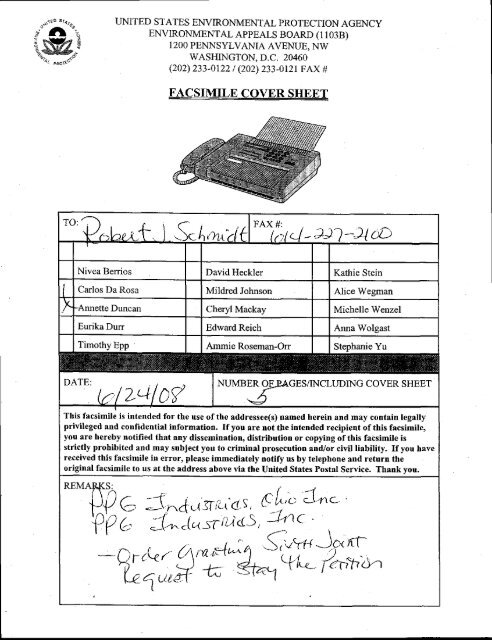 UNITED STATES ENVIRONMENTAL PROTECTION AGENCY
ENVIRONMENTAL APPEALS BOARD (1103B)
1200 PENNSYLVANIA AVENUE, NW
WASHINGTON, D.C. 20460
(202) 233-0122 / (202) 233-0121 FAX #
FACSIMILE COVER SHEET
TO: Robert J. Schmidt FAX #: 614-227-2100
Nivea Berrios David Heckler Kathie Stein
Carlos Da Rosa Mildred Johnson Alice Wegman
X Annette Duncan Cheryl Mackay Michelle Wenzel
Eurika Durr Edward Reich Anna Wolgast
Timothy Epp Ammie Roseman-Orr Stephanie Yu
DATE: 6/24/08 NUMBER OF PAGES/INCLUDING COVER SHEET
5
This facsimile is intended for the use of the addressee(s) named herein and may contain legally
privileged and confidential information. If you are not the intended recipient of this facsimile,
you are hereby notified that any dissemination, distribution or copying of this facsimile is
strictly prohibited and may subject you to criminal prosecution and/or civil liability. If you have
received this facsimile in error, please immediately notify us by telephone and return the
original facsimile to us at the address above via the United States Postal Service. Thank you.
REMARKS:
PPG Industries, Ohio Inc.
PPG Industries, Inc.
- Order Granting Sixth Joint
Request to Stay the Petition